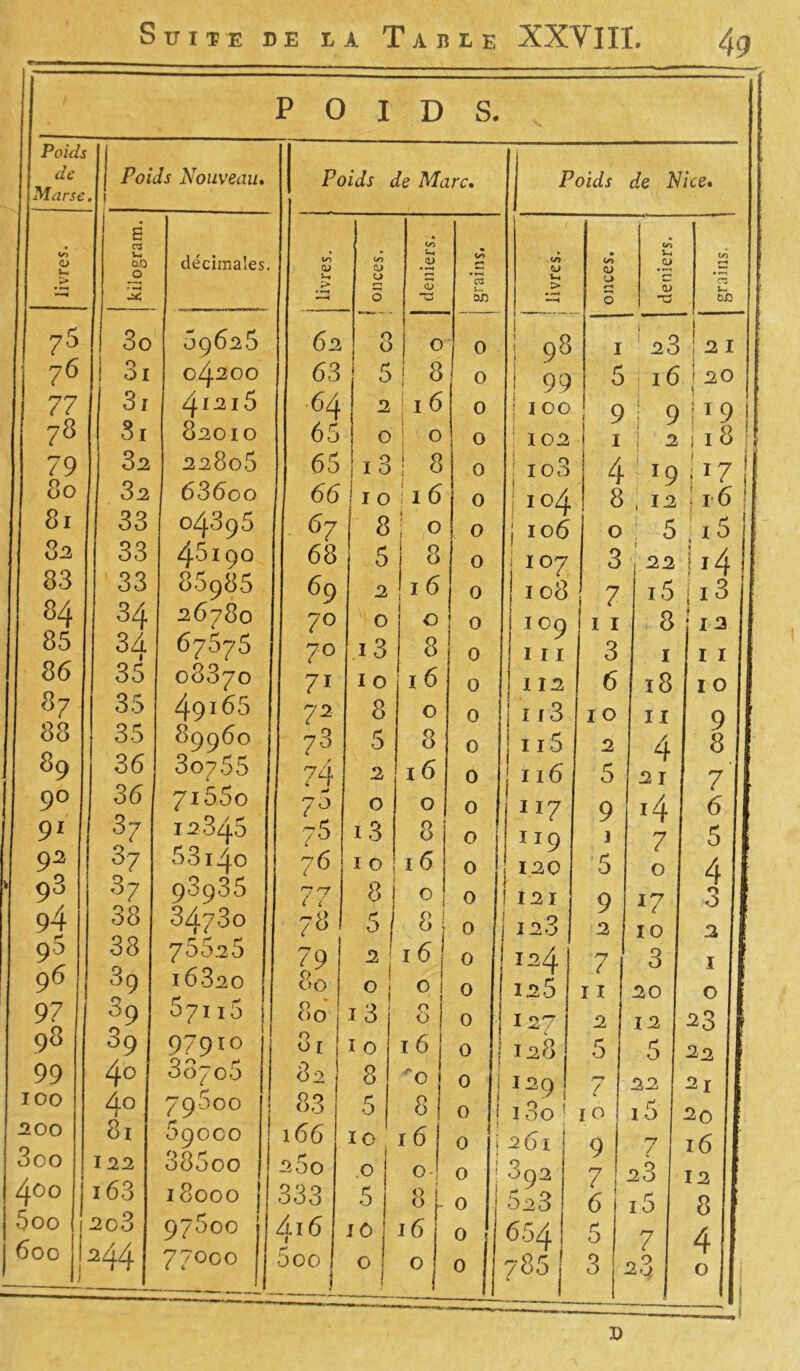 SUITE DE LA TABLE XXVIII. 49
POIDS.
Poids de Marse. Poids Nouveau. Poids de Marc. Poids de Nice.
livres. kilogram. décimales. livres. onces. deniers. grains. livres. onces. deniers. grains.
75 30 59625 62 8 0 0 98 1 23 21
76 31 04200 63 5 8 0 99 5 16 20
77 31 41215 64 2 16 0 100 9 9 19
78 31 82010 65 0 0 0 102 1 2 18
79 32 22805 65 13 8 0 103 4 19 17
80 32 63600 66 10 16 0 104 8 12 16
81 33 04395 67 8 0 0 106 0 5 15
82 33 45190 68 5 8 0 107 3 22 14
83 33 85985 69 2 16 0 108 7 15 13
84 34 26780 70 0 0 0 109 11 8 12
85 34 67575 70 13 8 0 111 3 1 11
86 35 08370 71 10 16 0 112 6 18 10
87 35 49165 72 8 0 0 113 10 11 9
88 35 89960 73 5 8 0 115 2 4 8
89 36 30755 74 2 16 0 116 5 21 7
90 36 71550 75 0 0 0 117 9 14 6
91 37 12345 75 13 8 0 119 1 7 5
92 37 53140 76 10 16 0 120 5 0 4
93 37 93935 77 8 0 0 121 9 17 3
94 38 34730 78 5 8 0 123 2 10 2
95 38 75525 79 2 16 0 124 7 3 1
96 39 16320 80 0 0 0 125 11 20 0
97 39 57115 80 13 8 0 127 2 12 23
98 39 97910 81 10 16 0 128 5 5 22
99 40 38705 82 8 0 0 129 7 22 21
100 40 79500 83 5 8 0 130 10 15 20
200 81 59000 166 10 16 0 261 9 7 16
300 122 38500 250 0 0 0 392 7 23 12
400 163 18000 333 5 8 0 523 6 15 8
500 203 97500 416 10 16 0 654 5 7 4
600 244 77000 500 0 0 0 785 3 23 0
D